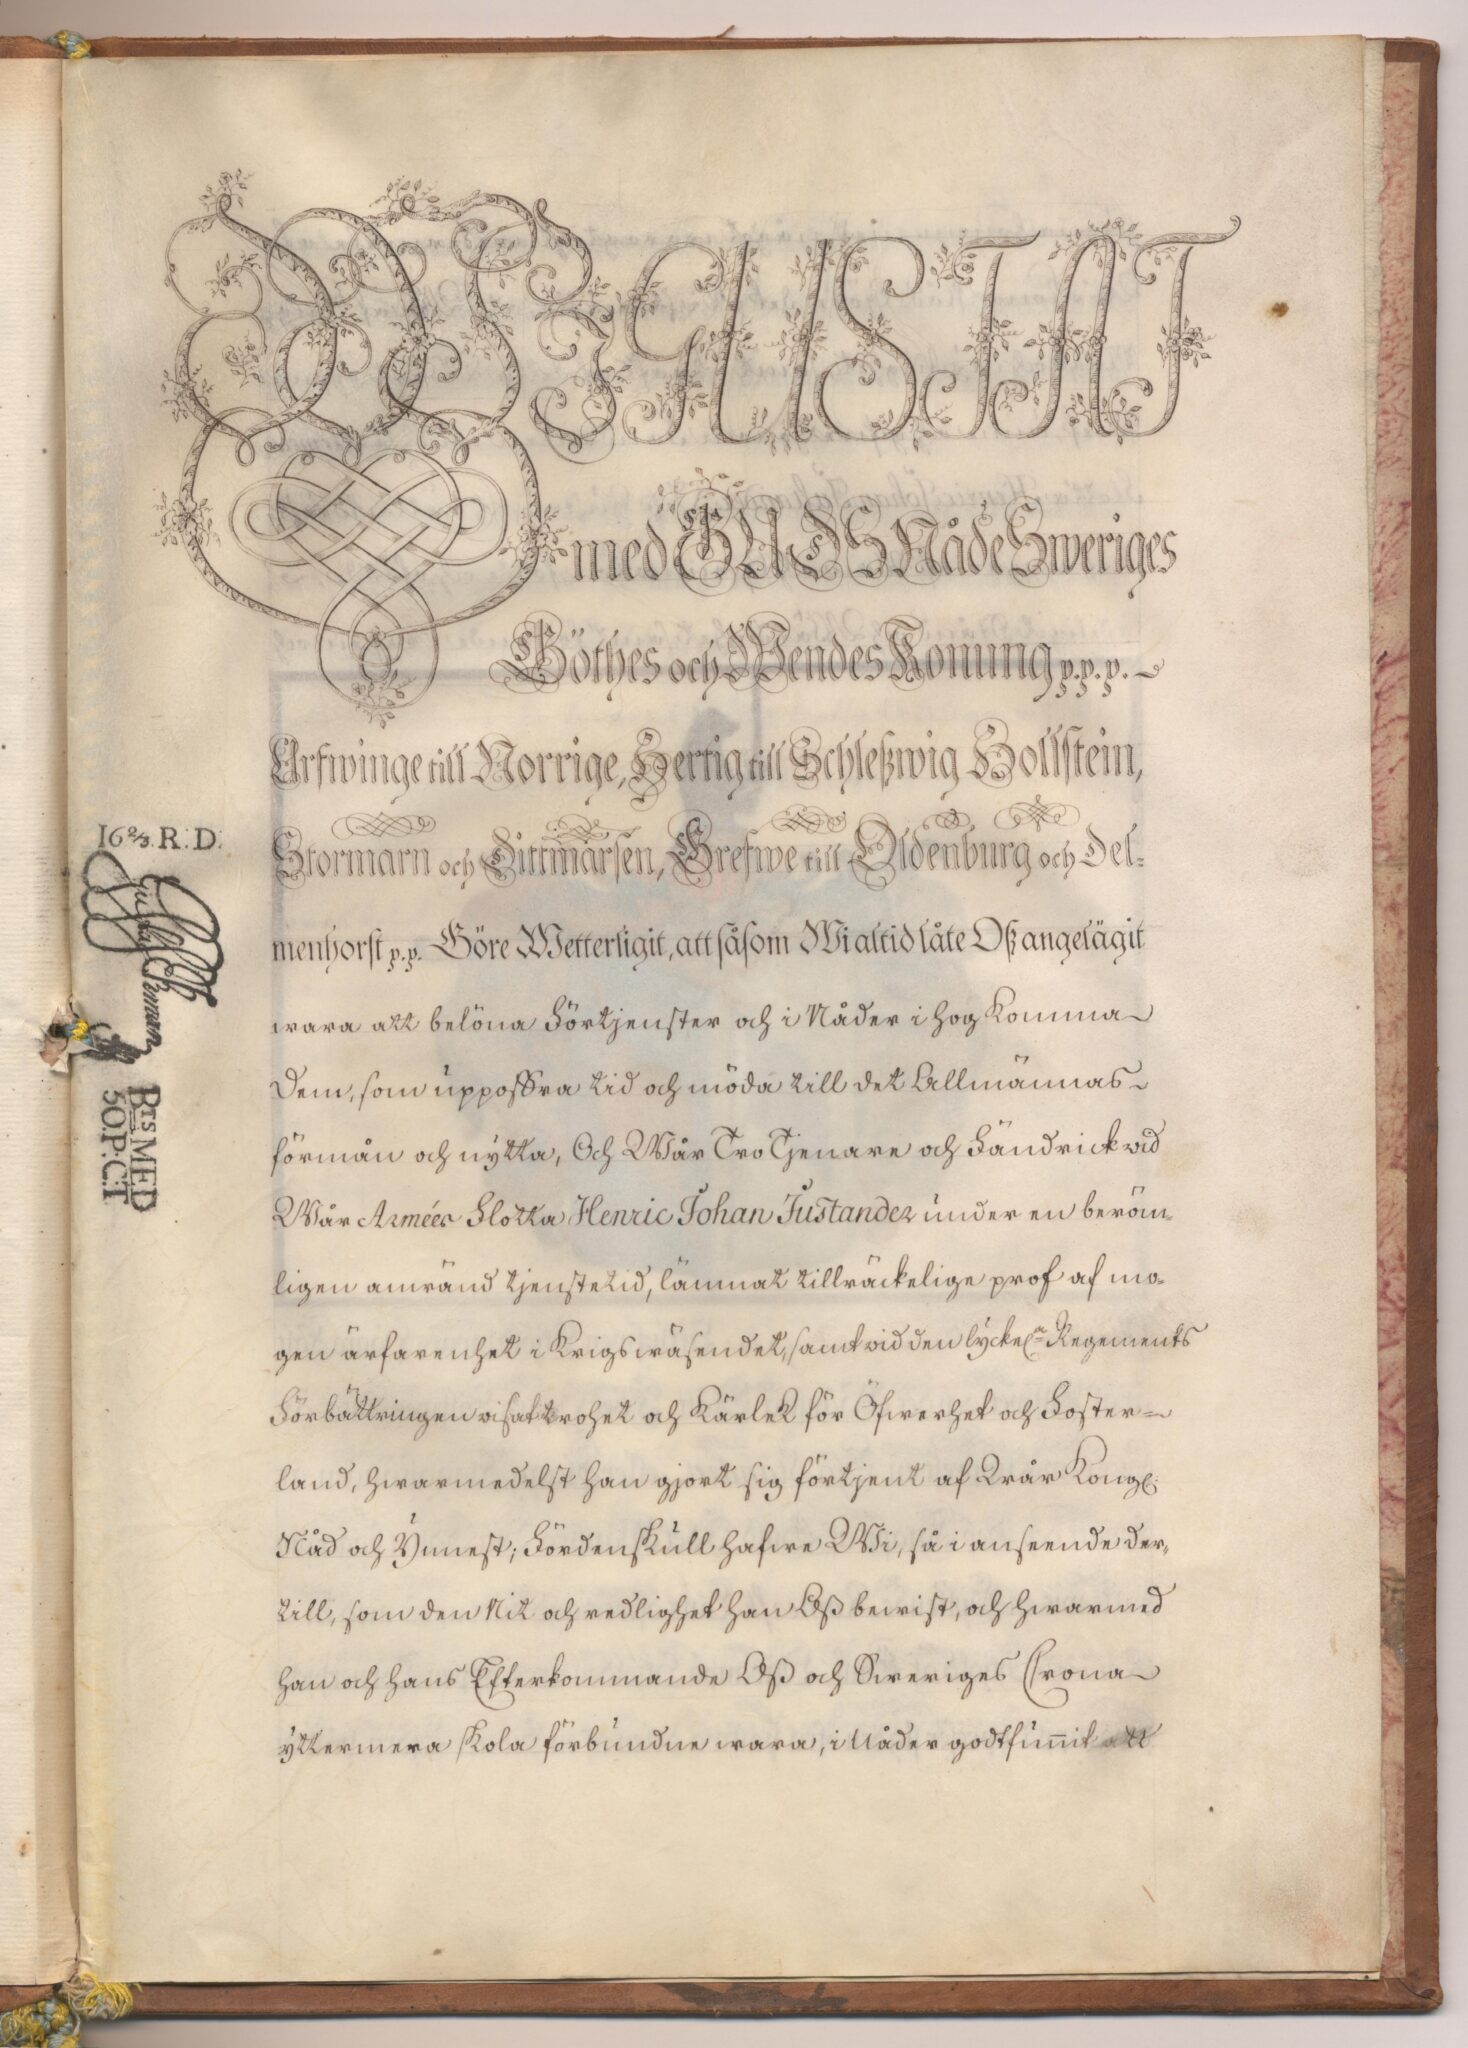 WJ GUSTAF
med GUDS Nåde Sweriges
Göthes och Wendes Konung p.p.p.
Arfwinge till Norrige, Hertig till Schleßwig Hollstein,
Stormarn och Dittmarsen, Grefwe till Oldenburg och Del-
menhorst p.p. Göre Wetterligit, att såsom Wi altid låte Oß angelägit
wara att belöna Förtjenster och i Nåder i hog Komma
Dem, som uppoffra tid och möda till det Allmännas
förmån och nytta, Och Wår Tro Tjenare och Fändrick vid
Wår Armées Flotta Henric Johan Justander under en beröm-
ligen anwänd tjenstetid, lämnat tillräckelige prof af mo-
gen ärfarenhet i Krigswäsendet, samt vid den lyckel. Regements
Förbättringen visat trohet och Kärlek för Öfwerhet och Foster-
land, hwarmedelst han gjort sig förtjent af Wår Kongl.
Nåd och Ynnest; Fördenskull hafwe Wi, så i anseende der-
till, som den Nit och redlighet han Oß bewist, och hwarmed
han och hans Efterkommande Oß och Sweriges Crona
yttermera skola förbundne wara, i Nåder godtfunnit att
16 2/3. R: D:
BTS MED
50. P: C:T